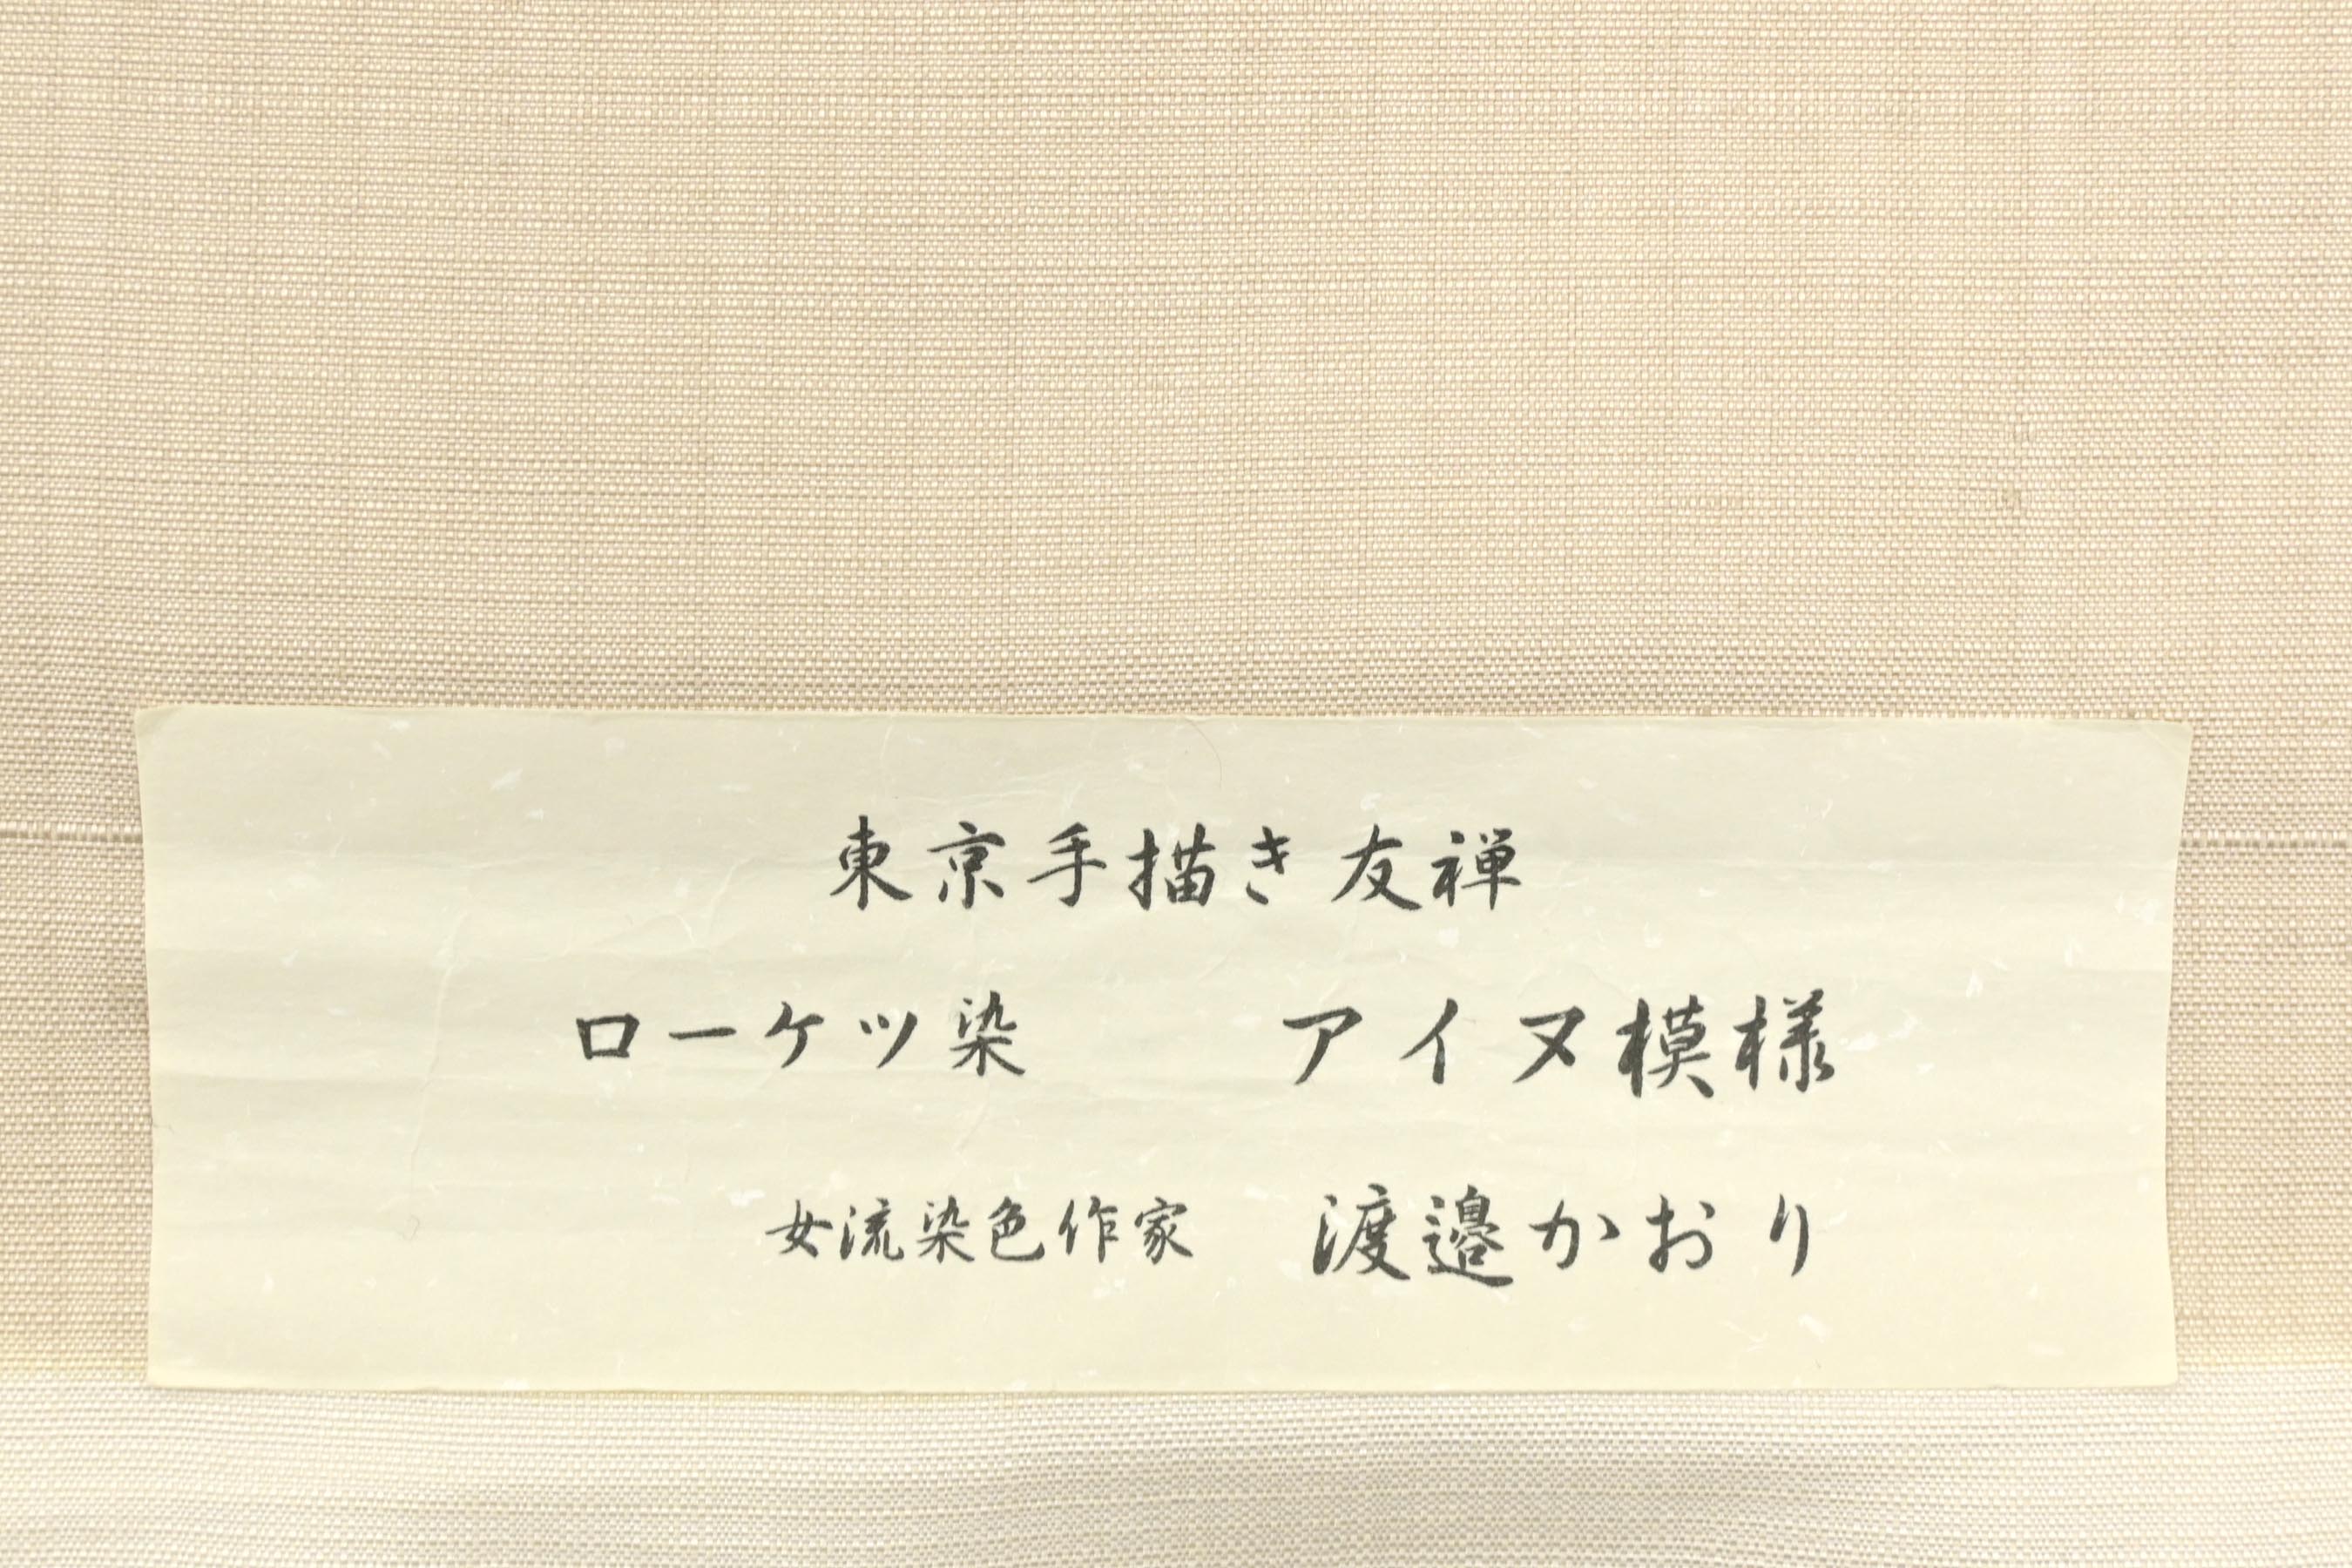 東京手描き友禅
ローケツ染　アイヌ模様
女流染色作家　渡邉かおり